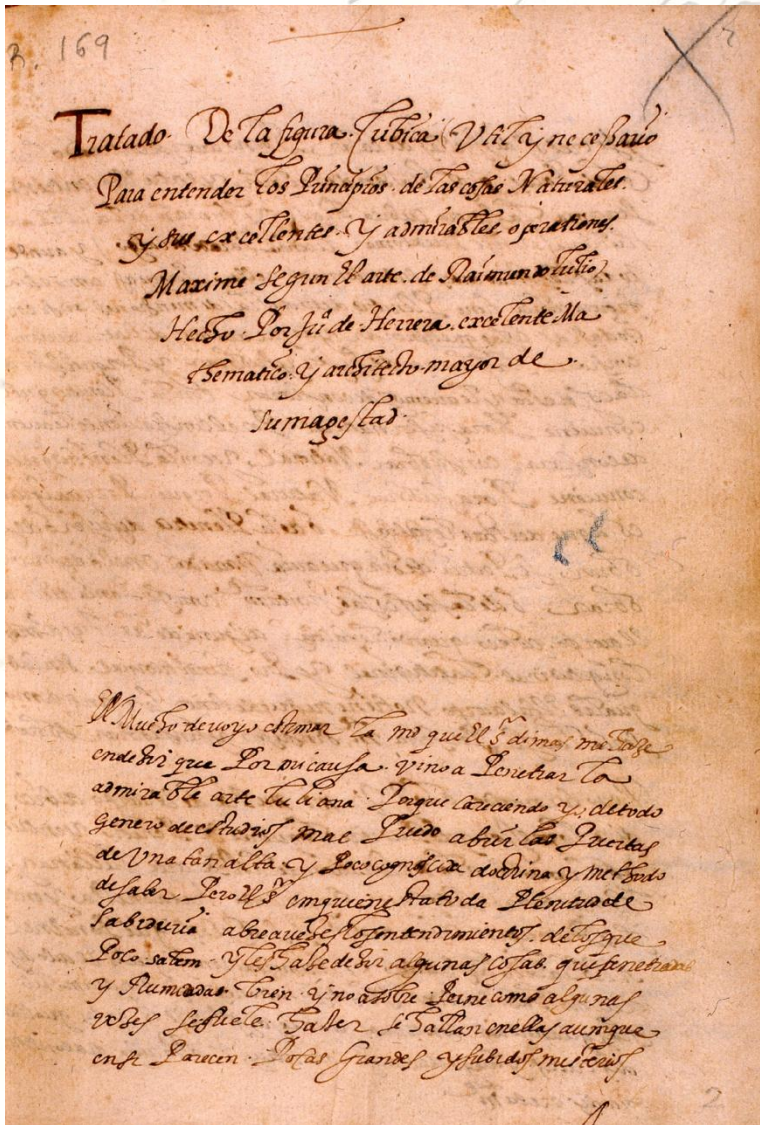 R. 169
Tratado. De la figura. Cubica (Vtil y necessario
Para entender los Principios. de las cosas Naturales.
y sus excellentes. y admirables. operationes.
Maxime segun el arte. de Raimundo lulio)
Hecho. Por Juº de Herrera. excelente Ma
thematico. y architecto mayor de.
su magestad.
Mucho devo yo estimar la md que el sr dimas me haze
en dezir que Por mi causa. vino a Penetrar la
admirable arte luliana. Porque careciendo yo de todo
genero de estudios mal Puedo abrir las Puertas
de Vna tan alta. y Poco cognoscida doctrina y methodo
de saber. Pero el sr en quien esta toda Plenitud de
sabiduria abre a vezes los entendimientos. de los que
Poco saben. y les haze dezir algunas cosas. que penetradas
y Rumiadas bien y no a sobre Peine como algunas
vezes se suele. hazer se hallan en ellas aunque
en si Parecen. Pocas Grandes y subidos misterios
2